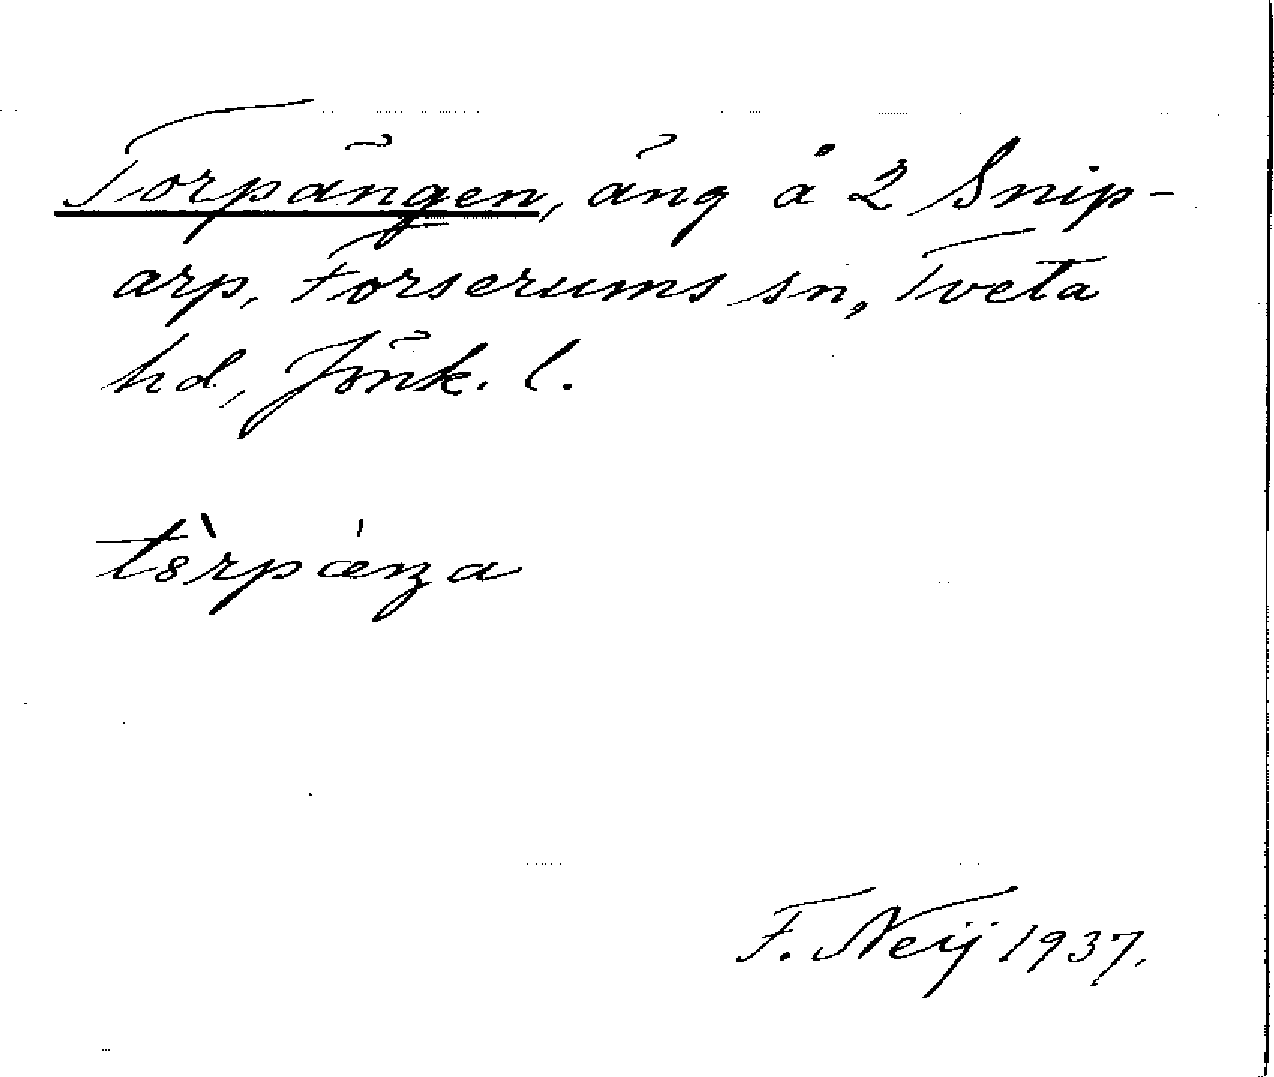 Torpängen, äng å 2 Snip-
arp, Forserums sn, Tveta
hd, Jönk. l.
tòrpǽŋa
F. Neij 1937.